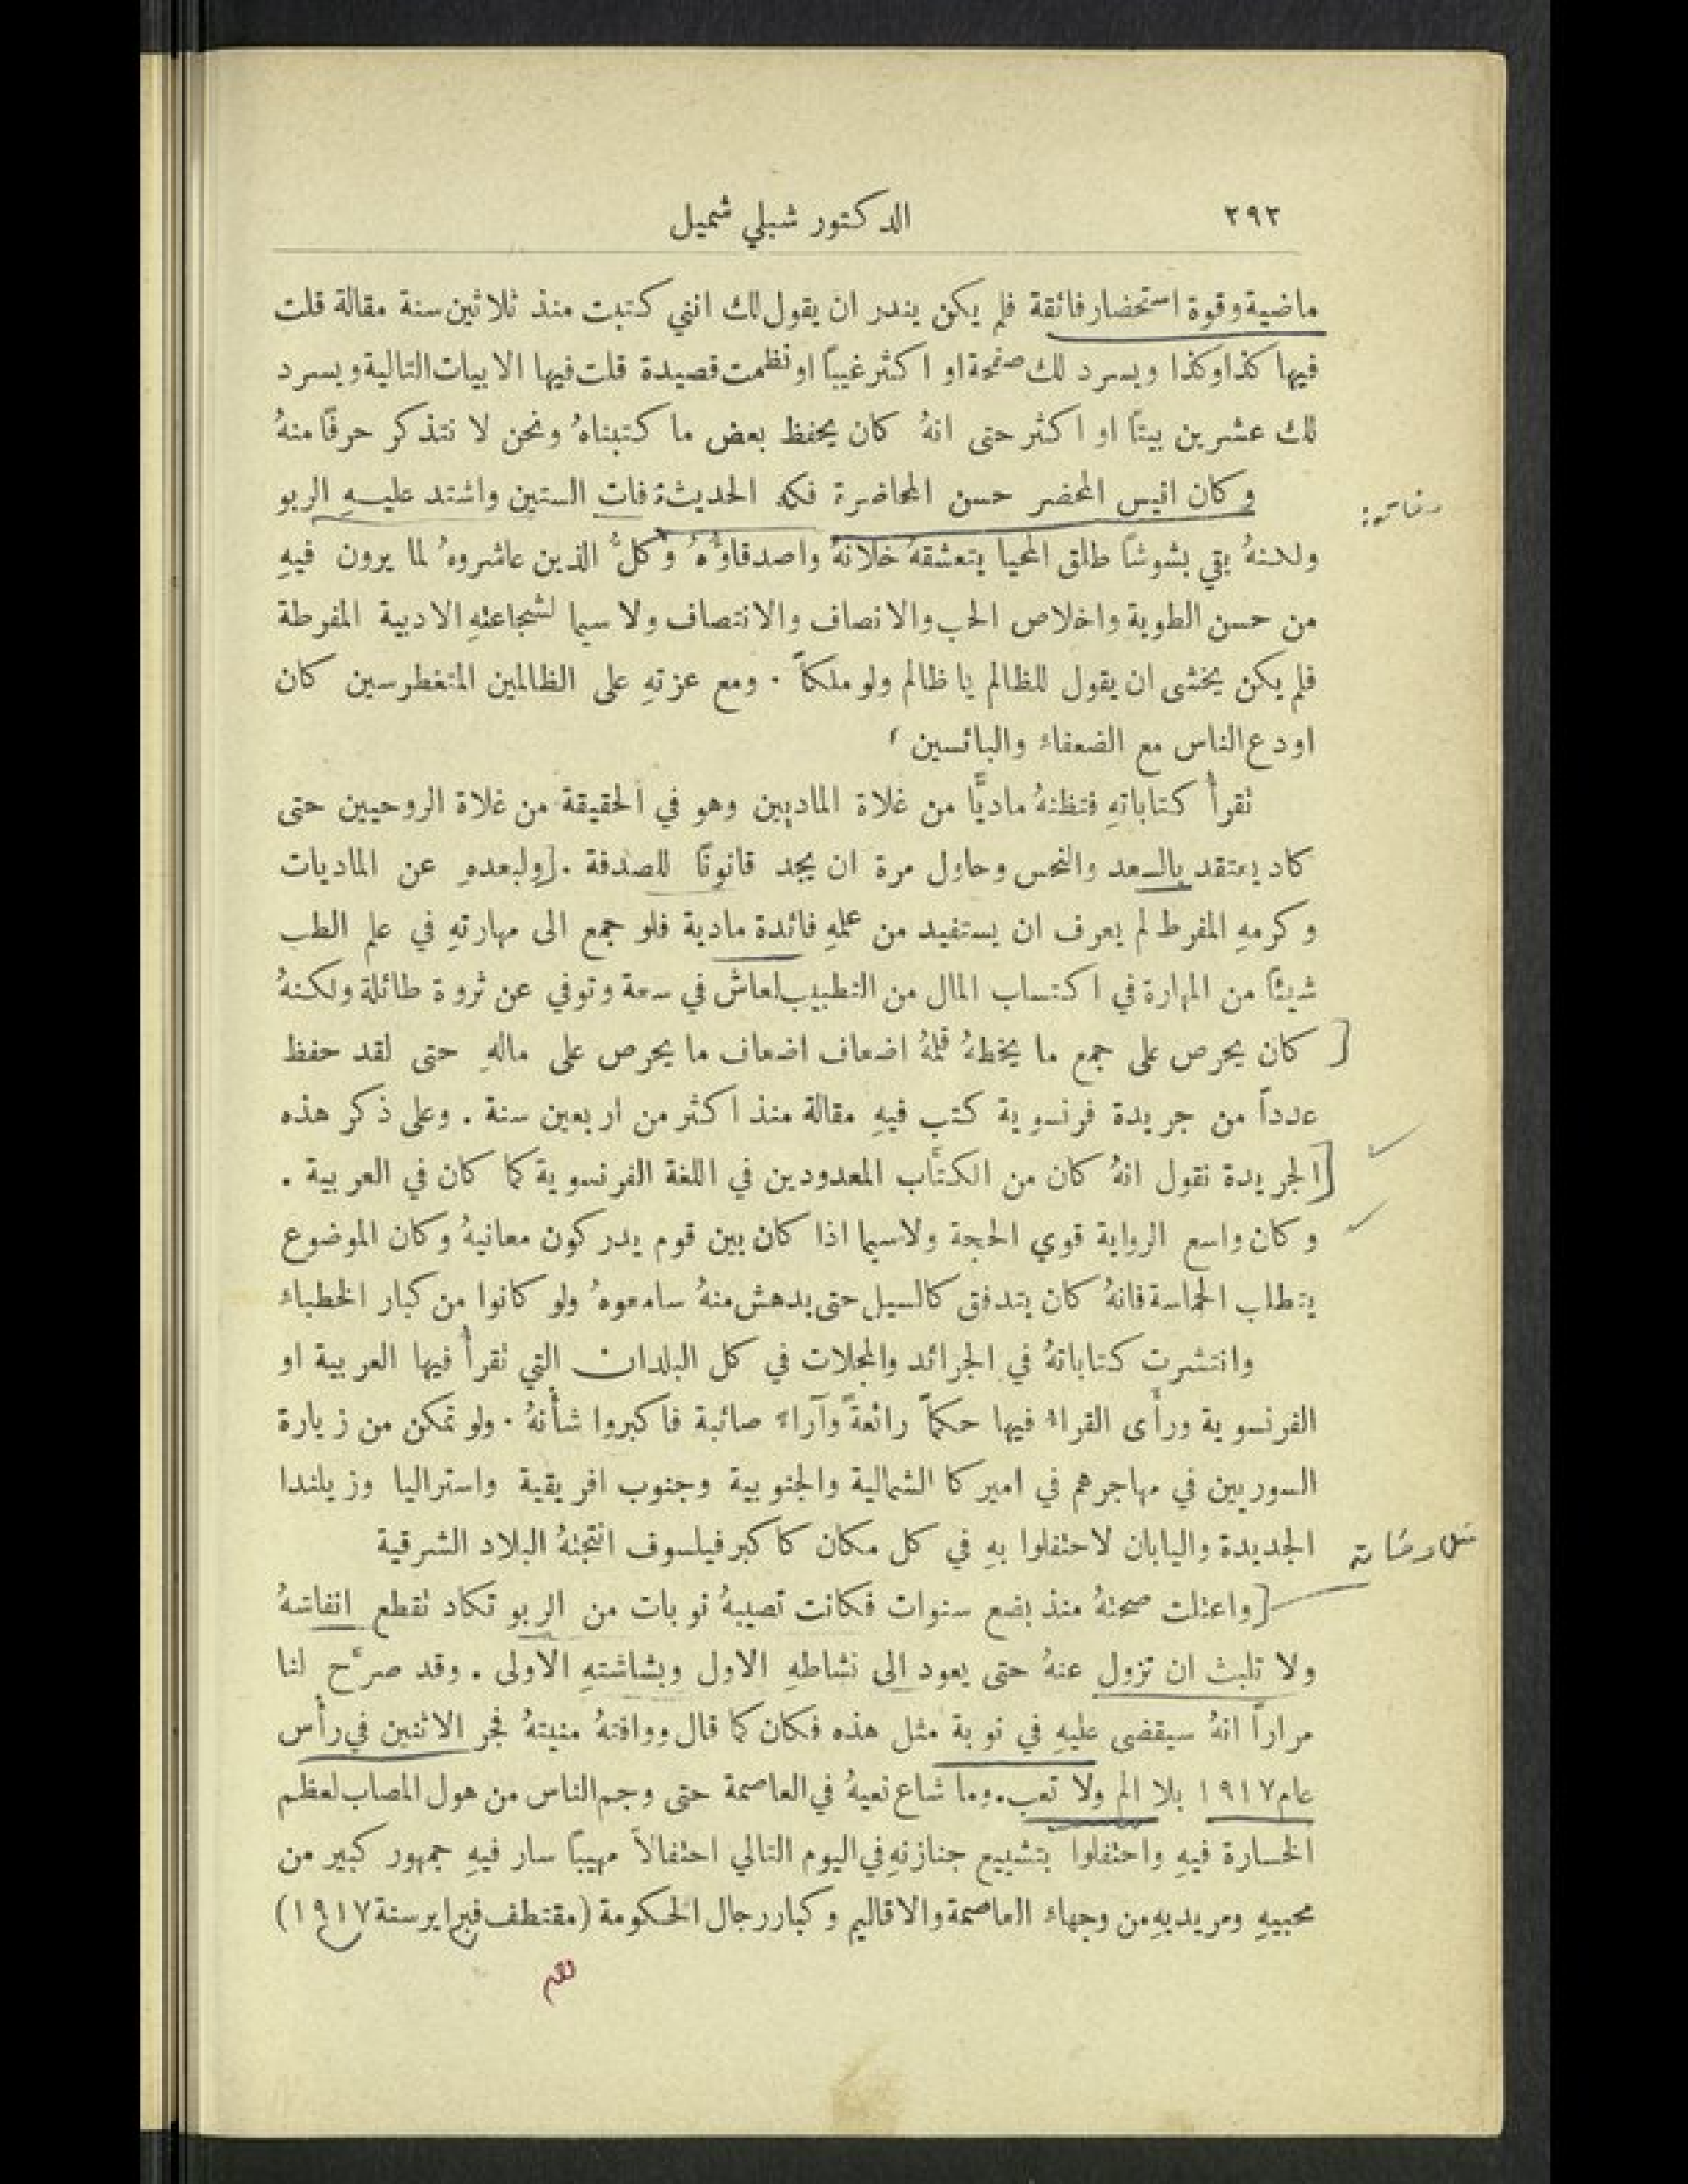 ٢٩٢ الدكتور شبلي شميل
ماضية وقوة استحضار فائقة فلم يكن يندر ان يقول لك انني كتبت منذ ثلاثين سنة مقالة قلت
فيها كذا وكذا ويسرد لك صفحة او اكثر غيباً او نظمت قصيدة قلت فيها الابيات التالية ويسرد
لك عشرين بيتاً او اكثر حتى انهُ كان يحفظ بعض ما كتبناهُ ونحن لا نتذكر حرفاً منهُ
وكان انيس المحضر حسن المحاضرة فكه الحديث فات الستين واشتد عليهِ الربو
ولكنهُ بقي بشوشاً طلق المحيا يتعشقهُ خلانهُ واصدقاؤُهُ وكلُّ الذين عاشروهُ لما يرون فيهِ
من حسن الطوية واخلاص الحب والانصاف والانتصاف ولا سيما لشجاعتهِ الادبية المفرطة
فلم يكن يخشى ان يقول للظالم يا ظالم ولو ملكاً . ومع عزتهِ على الظالمين المتغطرسين كان
اودع الناس مع الضعفاء والبائسين
تقرأُ كتاباتهِ فتظنهُ ماديًّا من غلاة الماديين وهو في الحقيقة من غلاة الروحيين حتى
كاد يعتقد بالسعد والنحس وحاول مرة ان يجد قانوناً للصدفة . ولبعدهِ عن الماديات
وكرمهِ المفرط لم يعرف ان يستفيد من علمهِ فائدة مادية فلو جمع الى مهارتهِ في علم الطب
شيئاً من المهارة في اكتساب المال من التطبيب لعاش في سعة وتوفي عن ثروة طائلة ولكنهُ
كان يحرص على جمع ما يخطهُ قلمهُ اضعاف اضعاف ما يحرص على مالهِ حتى لقد حفظ
عدداً من جريدة فرنسوية كتب فيهِ مقالة منذ اكثر من اربعين سنة . وعلى ذكر هذه
الجريدة نقول انهُ كان من الكتَّاب المعدودين في اللغة الفرنسوية كما كان في العربية .
وكان واسع الرواية قوي الحجة ولاسيما اذا كان بين قوم يدركون معانيهُ وكان الموضوع
يتطلب الحماسة فانهُ كان يتدفق كالسيل حتى يدهش منهُ سامعوهُ ولو كانوا من كبار الخطباء
وانتشرت كتاباتهُ في الجرائد والمجلات في كل البلدان التي تقرأُ فيها العربية او
الفرنسوية ورأى القراء فيها حكماً رائعةً وآراء صائبة فاكبروا شأنهُ . ولو تمكن من زيارة
السوريين في مهاجرهم في اميركا الشمالية والجنوبية وجنوب افريقية واستراليا وزيلندا
الجديدة واليابان لاحتفلوا بهِ في كل مكان كاكبر فيلسوف انتجتهُ البلاد الشرقية
واعتلت صحتهُ منذ بضع سنوات فكانت تصيبهُ نوبات من الربو تكاد تقطع انفاسهُ
ولا تلبث ان تزول عنهُ حتى يعود الى نشاطهِ الاول وبشاشتهِ الاولى . وقد صرَّح لنا
مراراً انهُ سيقضى عليهِ في نوبة مثل هذه فكان كما قال ووافتهُ منيتهُ فجر الاثنين في رأس
عام ١٩١٧ بلا الم ولا تعب. وما شاع نعيهُ في العاصمة حتى وجم الناس من هول المصاب لعظم
الخسارة فيهِ واحتفلوا بتشييع جنازتهِ في اليوم التالي احتفالاً مهيباً سار فيهِ جمهور كبير من
محبيهِ ومريديهِ من وجهاء العاصمة والاقاليم وكبار رجال الحكومة (مقتطف فبراير سنة ١٩١٧)